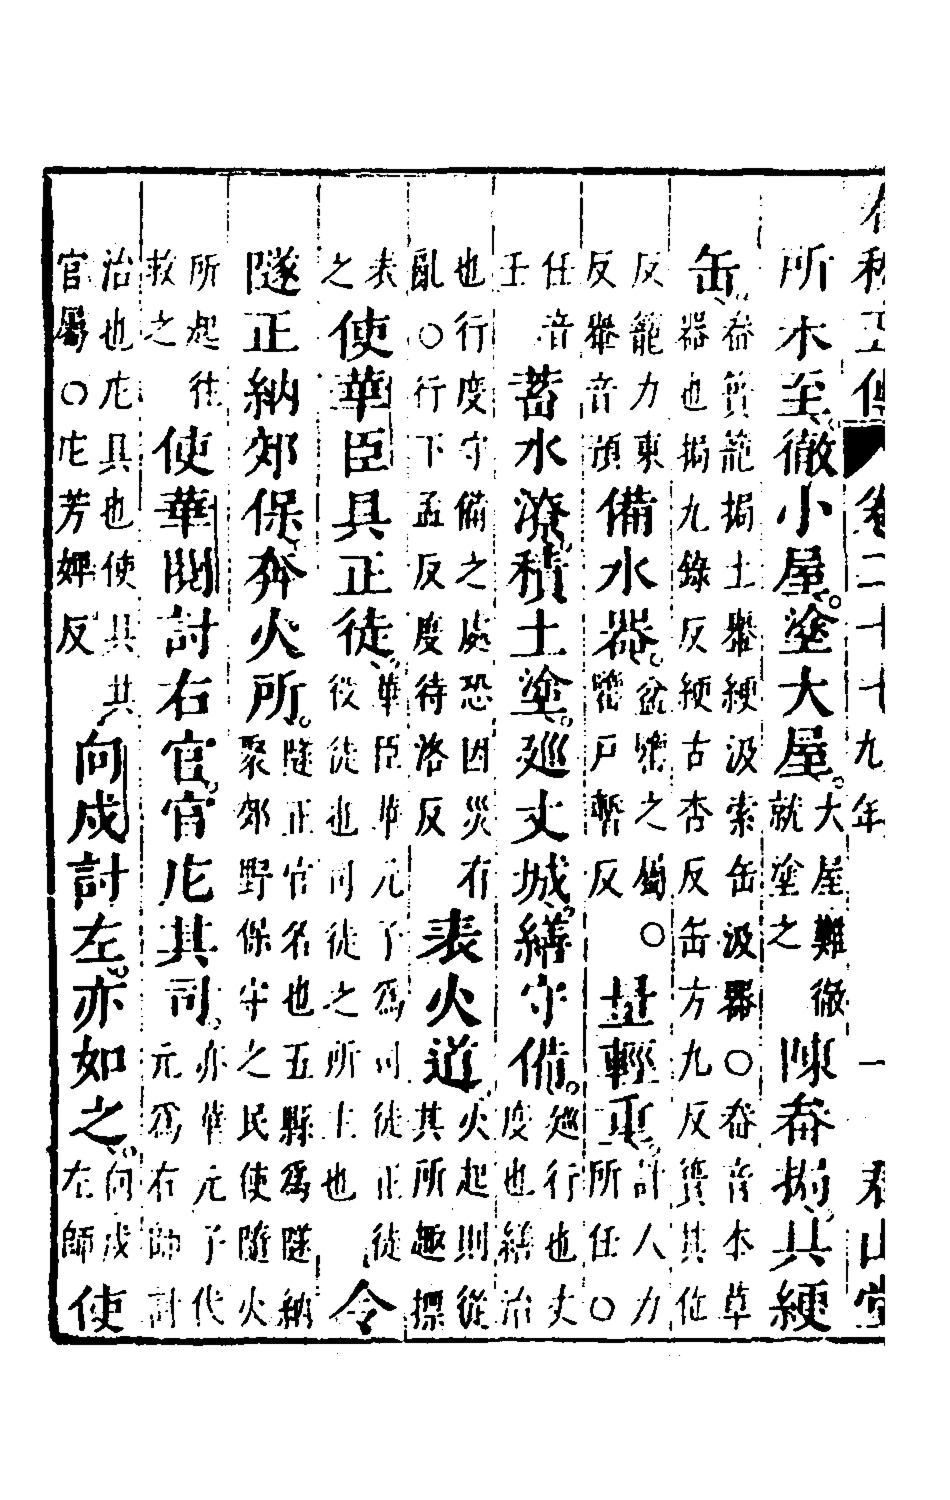 春秋左傳 卷二十七 九年 一 君山堂
所木至徹小屋塗大屋大屋難徹就塗之陳畚挶具綆
缶畚簣籠挶土轝綆汲索缶汲器○畚音本草器也挶九錄反綆古杏反缶方九反簣其位
反籠力東反轝音預備水器盆甖之屬○甖戶暫反量輕重計人力所任○
任音壬蓄水潦積土塗巡丈城繕守備巡行也丈度也繕治
也行度守備之處恐因災有亂○行下孟反度待洛反表火道火起則從其所趣摽
表之使華臣具正徒華臣華元子為司徒正徒役徒也司徒之所主也令
隧正納郊保奔火所隧正官名也五縣為隧納聚郊野保守之民使隨火
所起往救之使華閱討右官官庀其司亦華元子代元為右師討
治也庀具也使具其官屬○庀芳婢反向戌討左亦如之向戌左師使